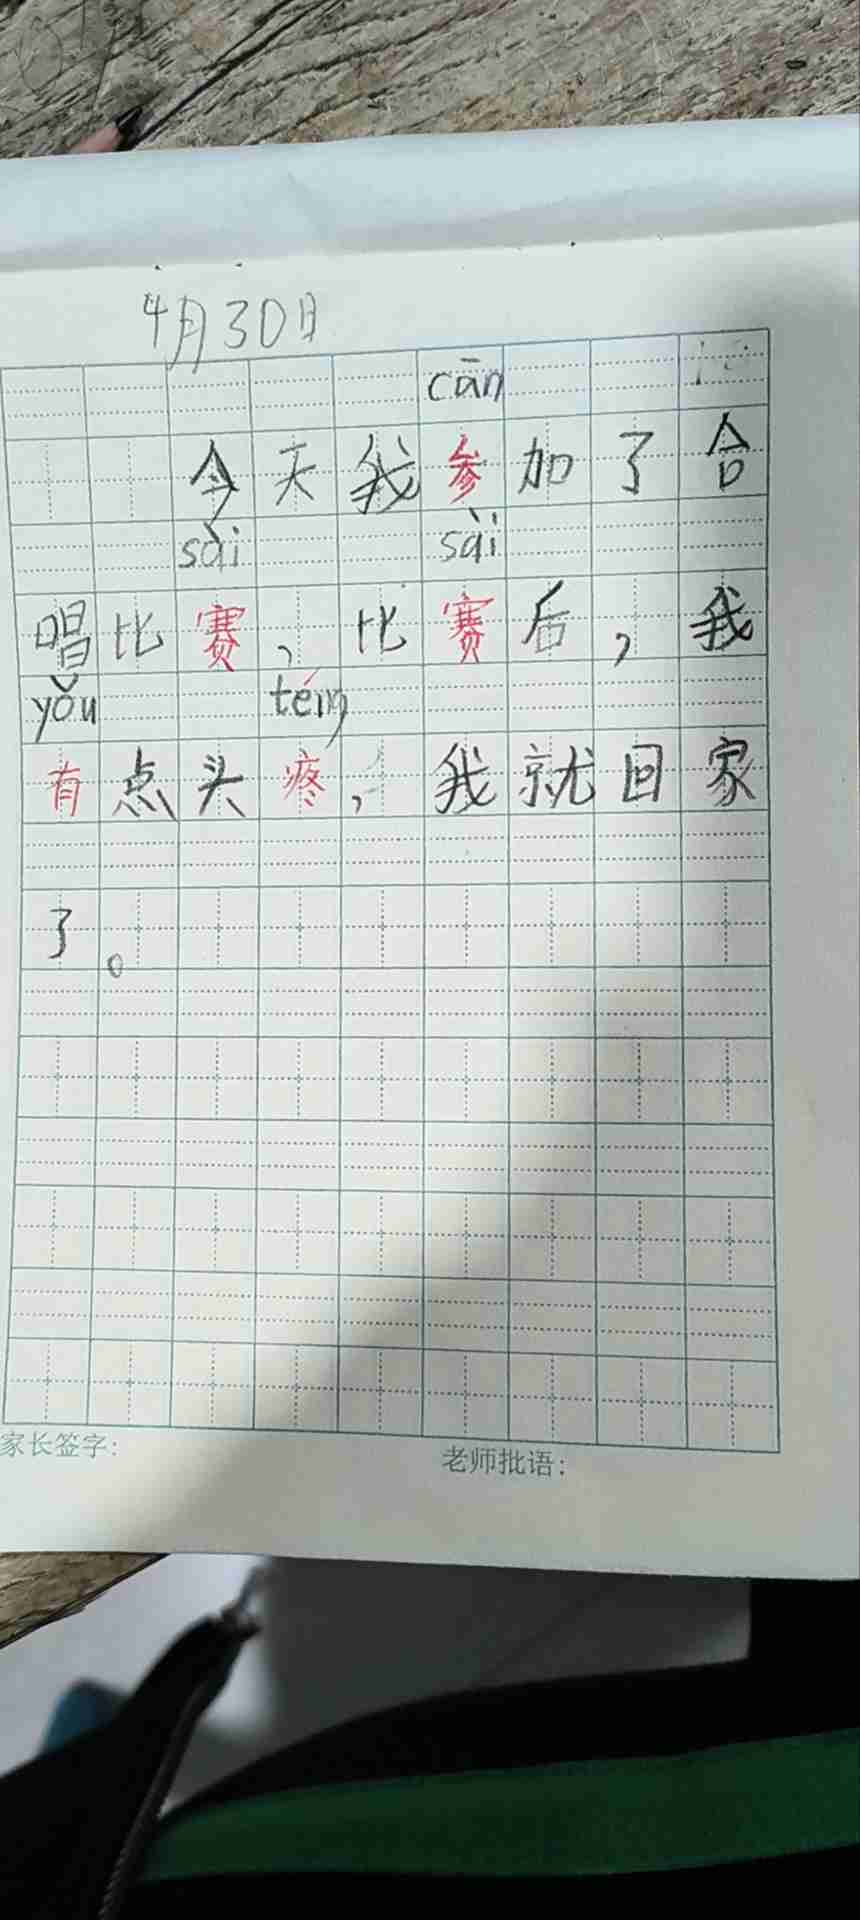 4月30日
cān
今天我参加了合
sài sài
唱比赛，比赛后，我
yǒu téng
有点头疼，我就回家
了。
家长签字：
老师批语：